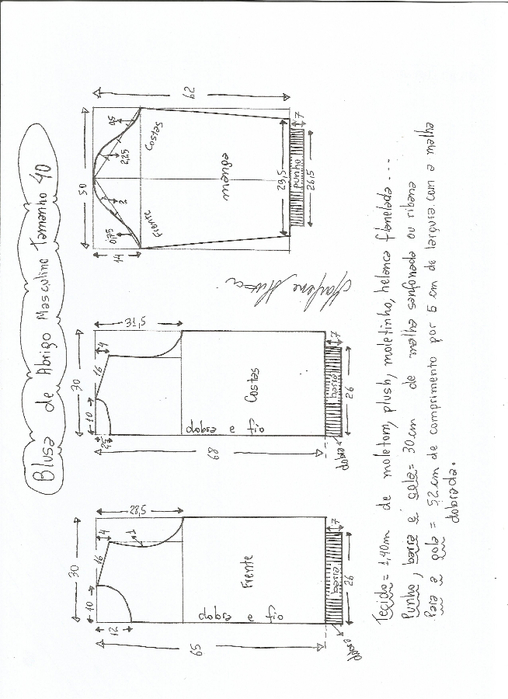 Blusa de Abrigo Masculino Tamanho 40
65
30
12
10
16
4
1
28,5
Frente
fio e dobra
barra
7
26
dobra
68
30
2,5
10
16
4
31,5
Costas
fio e dobra
barra
7
26
dobra
50
62
14
0,75
2
2,25
0,5
Frente
Costas
manga
29,5
punho
7
26,5
Marlene Mukai
Tecido = 1,40m de moletom, plush, moletinho, helanca flanelada ...
Punho, barra e gola = 30 cm de malha sanfonada ou ribana
Para a gola = 52 cm de comprimento por 6 cm de largura com a malha
dobrada.